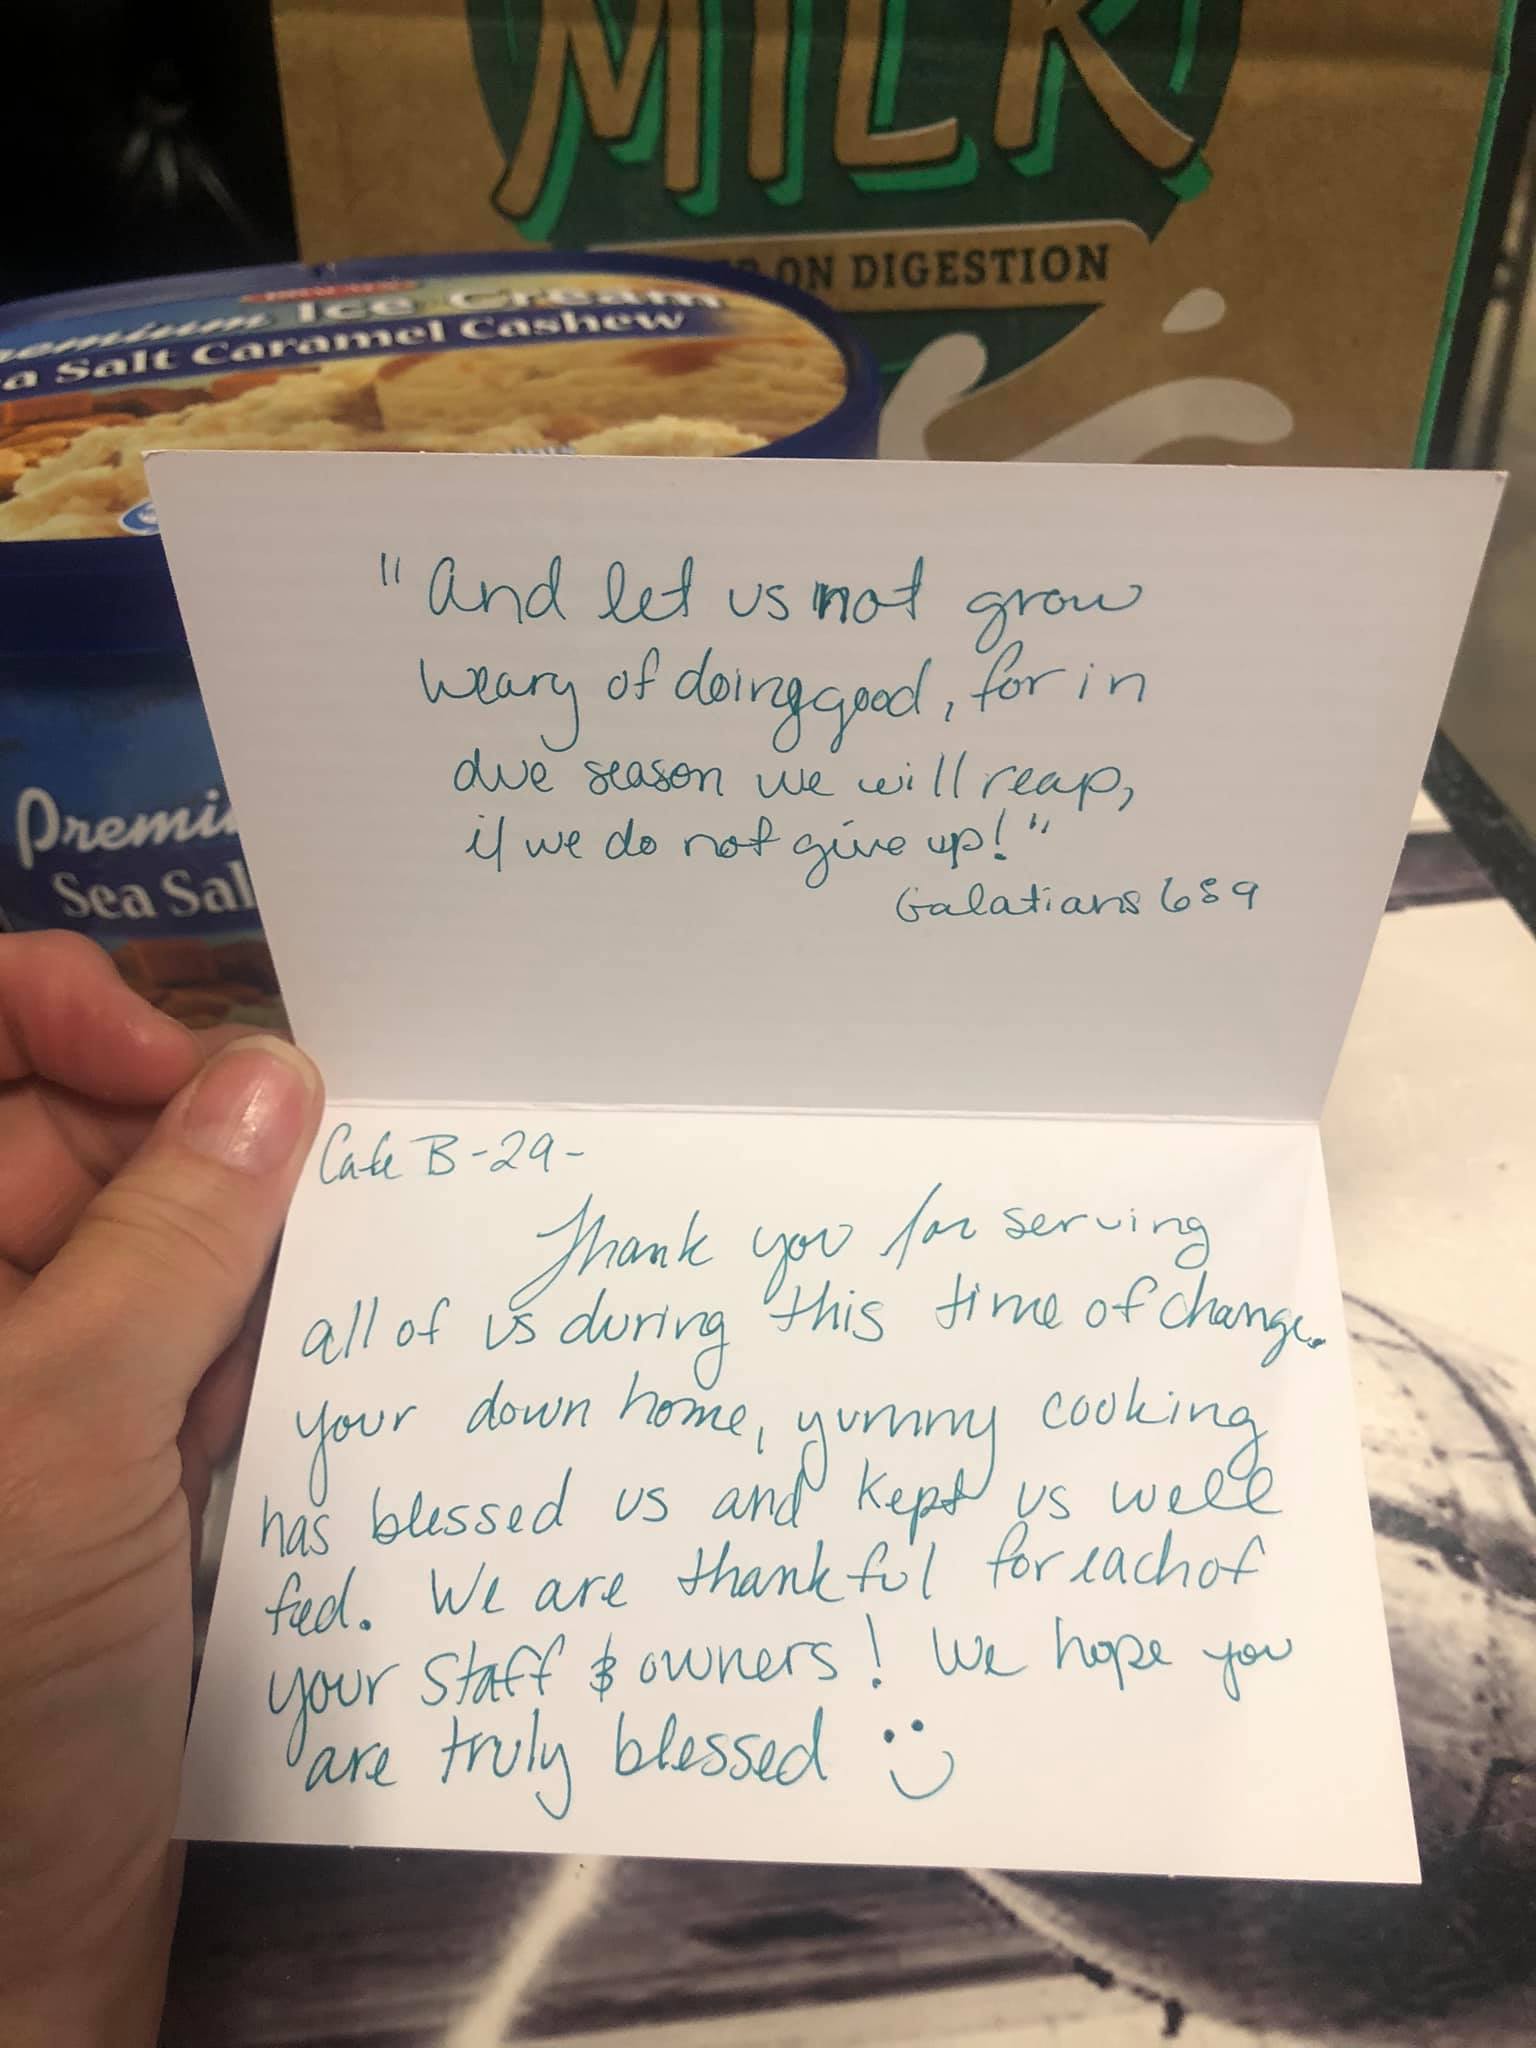 MILK
ON DIGESTION
Premium Ice Cream
Sea Salt Caramel Cashew
Premi
Sea Sal
"And let us not grow
weary of doing good, for in
due season we will reap,
if we do not give up!"
Galatians 6:9
Cafe B-29-
Thank you for serving
all of us during this time of change.
your down home, yummy cooking
has blessed us and kept us well
fed. We are thankful for each of
your staff & owners! We hope you
are truly blessed :)